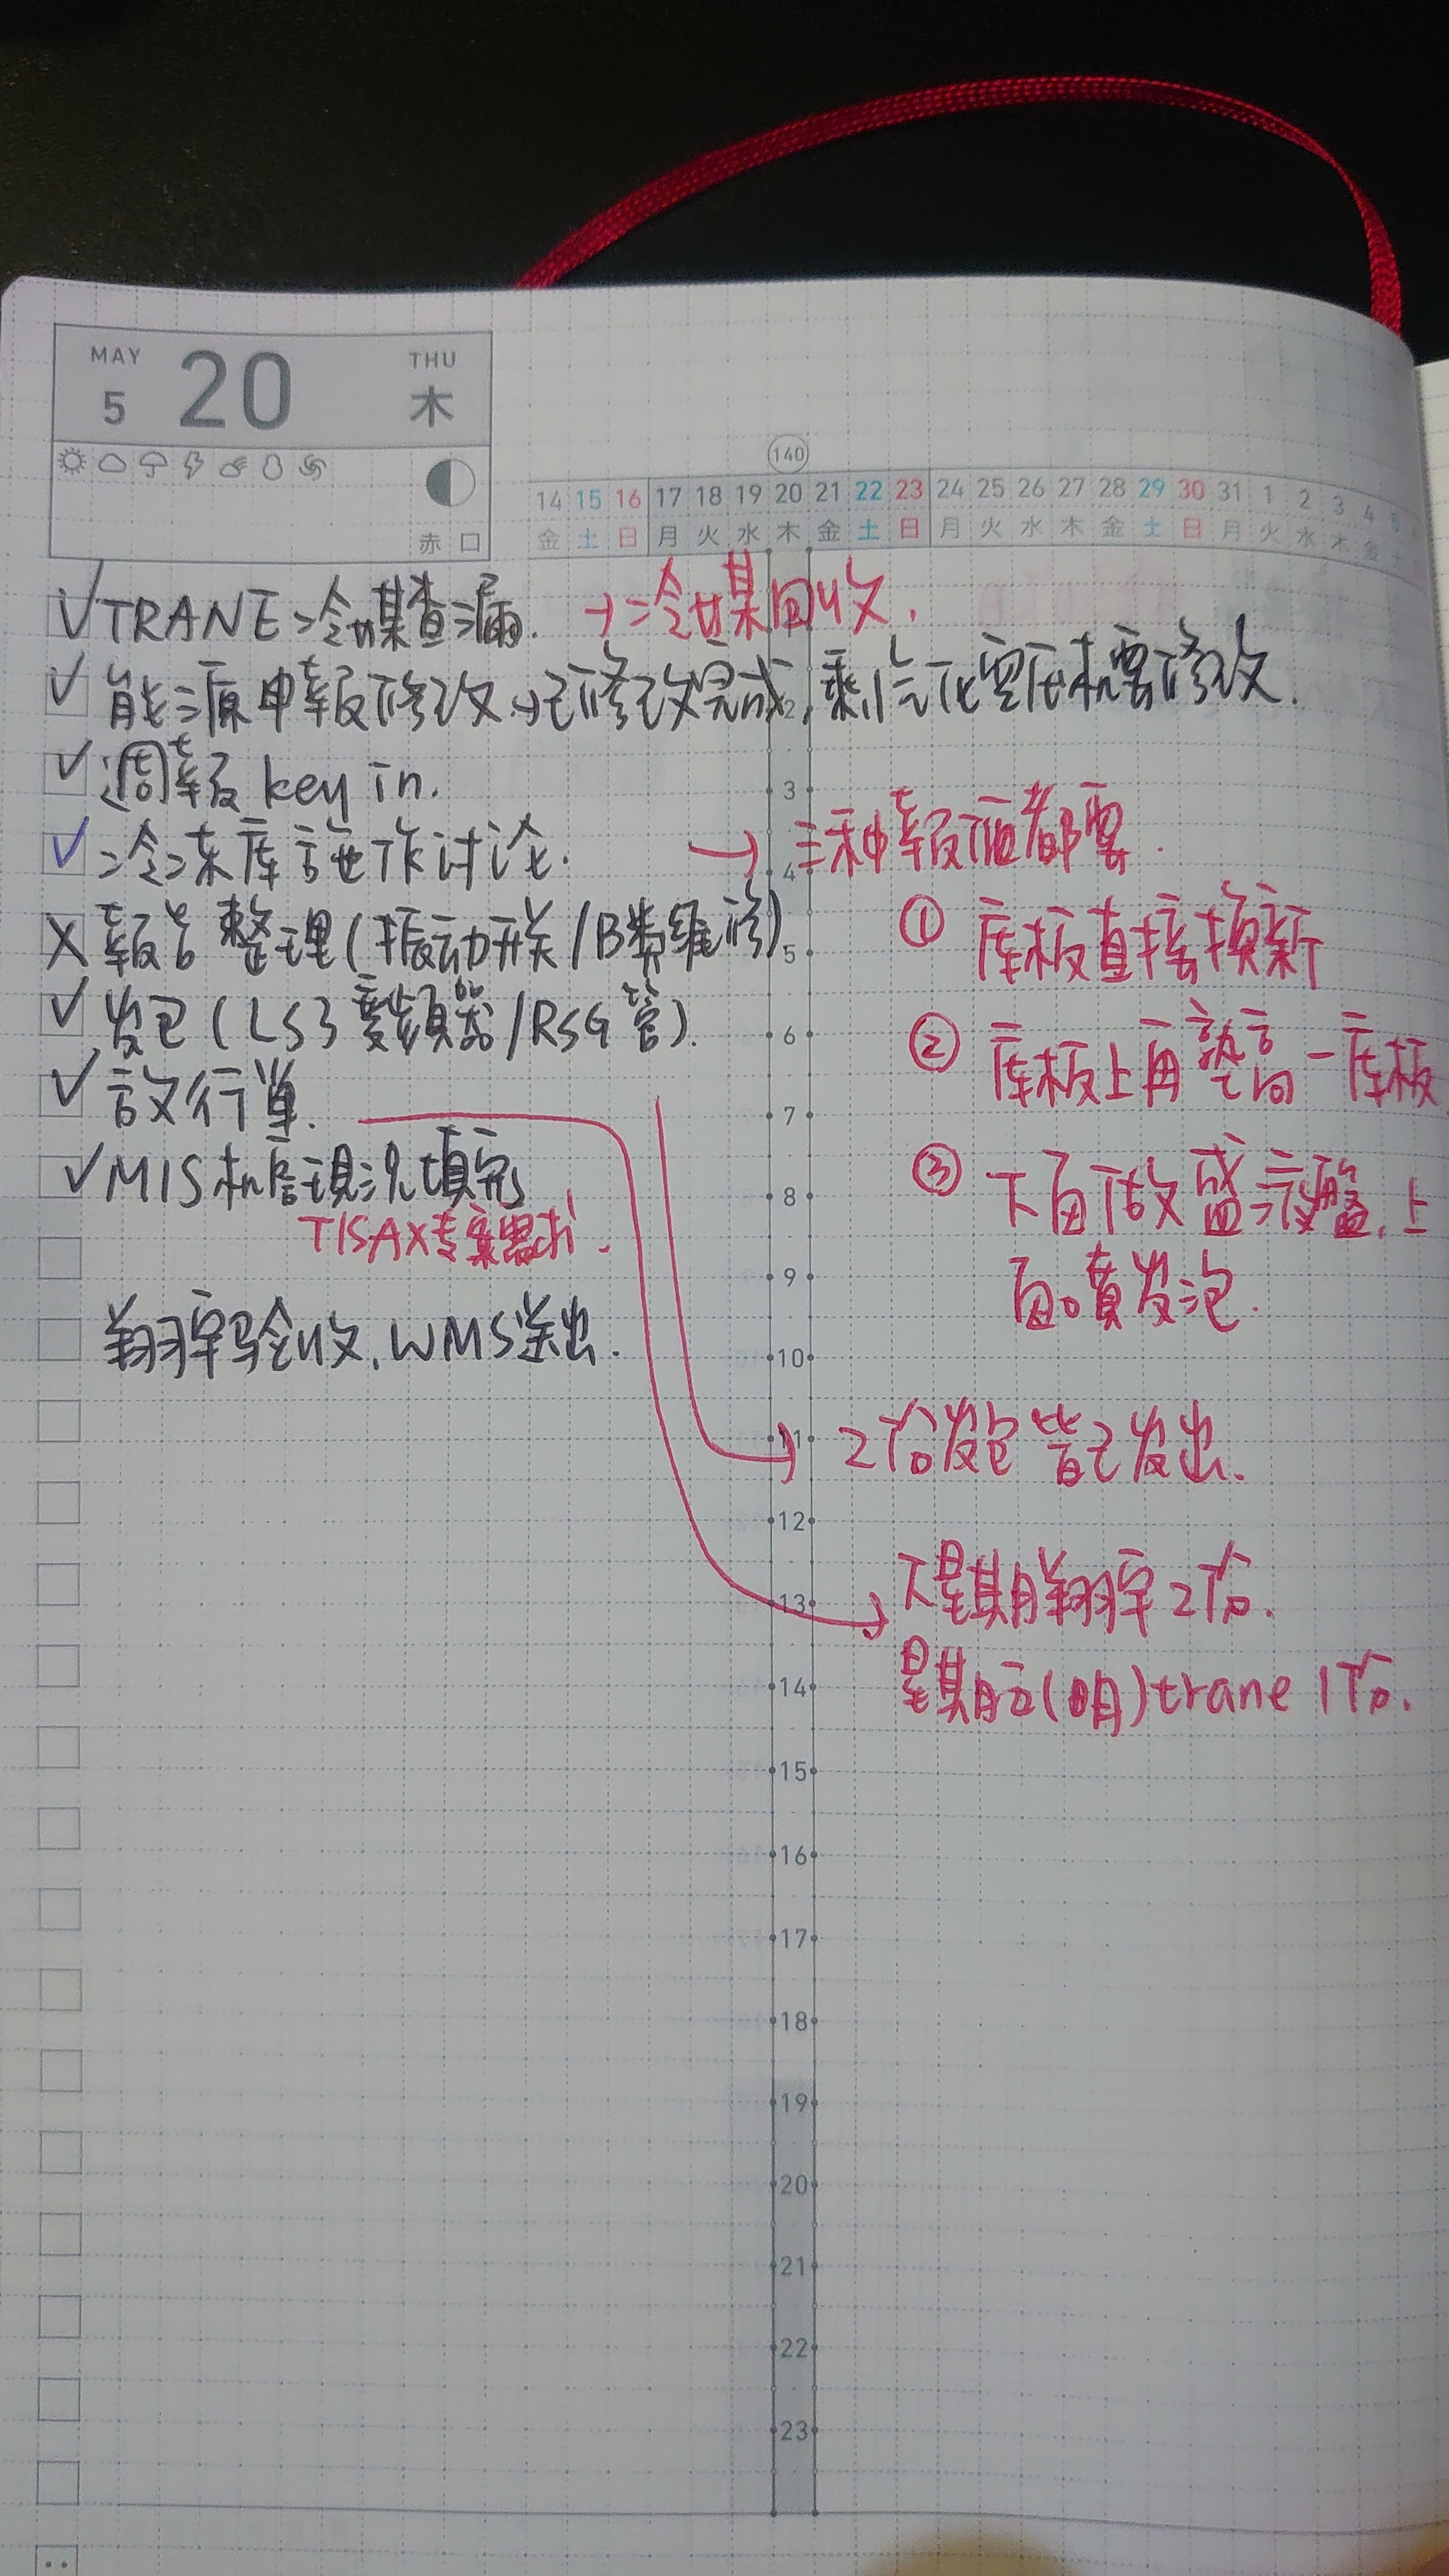 MAY 5 20 THU 木
赤口
140
14 15 16 17 18 19 20 21 22 23 24 25 26 27 28 29 30 31 1 2 3 4 5
金 土 日 月 火 水 木 金 土 日 月 火 水 木 金 土 日 月 火 水 木 金 土
✓ TRANE 冷媒查漏. → 冷媒回收.
✓ 能源申報修改→已修改完成, 剩 空压机要修改.
✓ 週報 key in.
✓ 冷冻库施作讨论. → 三种報價都要.
① 库板直接换新
X 報告整理(振动开关/B类維修)
✓ 发包(LS3變頻器/RSG管).
② 库板上再墊高一库板
✓ 放行单.
③ 下面做盛液盤,上
面噴发泡.
✓ MIS机房現況填完
TISAX专案需求.
翔宇验收, WMS送出.
2份发包皆已发出.
下星期翔宇2份.
星期五(明)trane 1份.
2
3
4
5
6
7
8
9
10
11
12
13
14
15
16
17
18
19
20
21
22
23